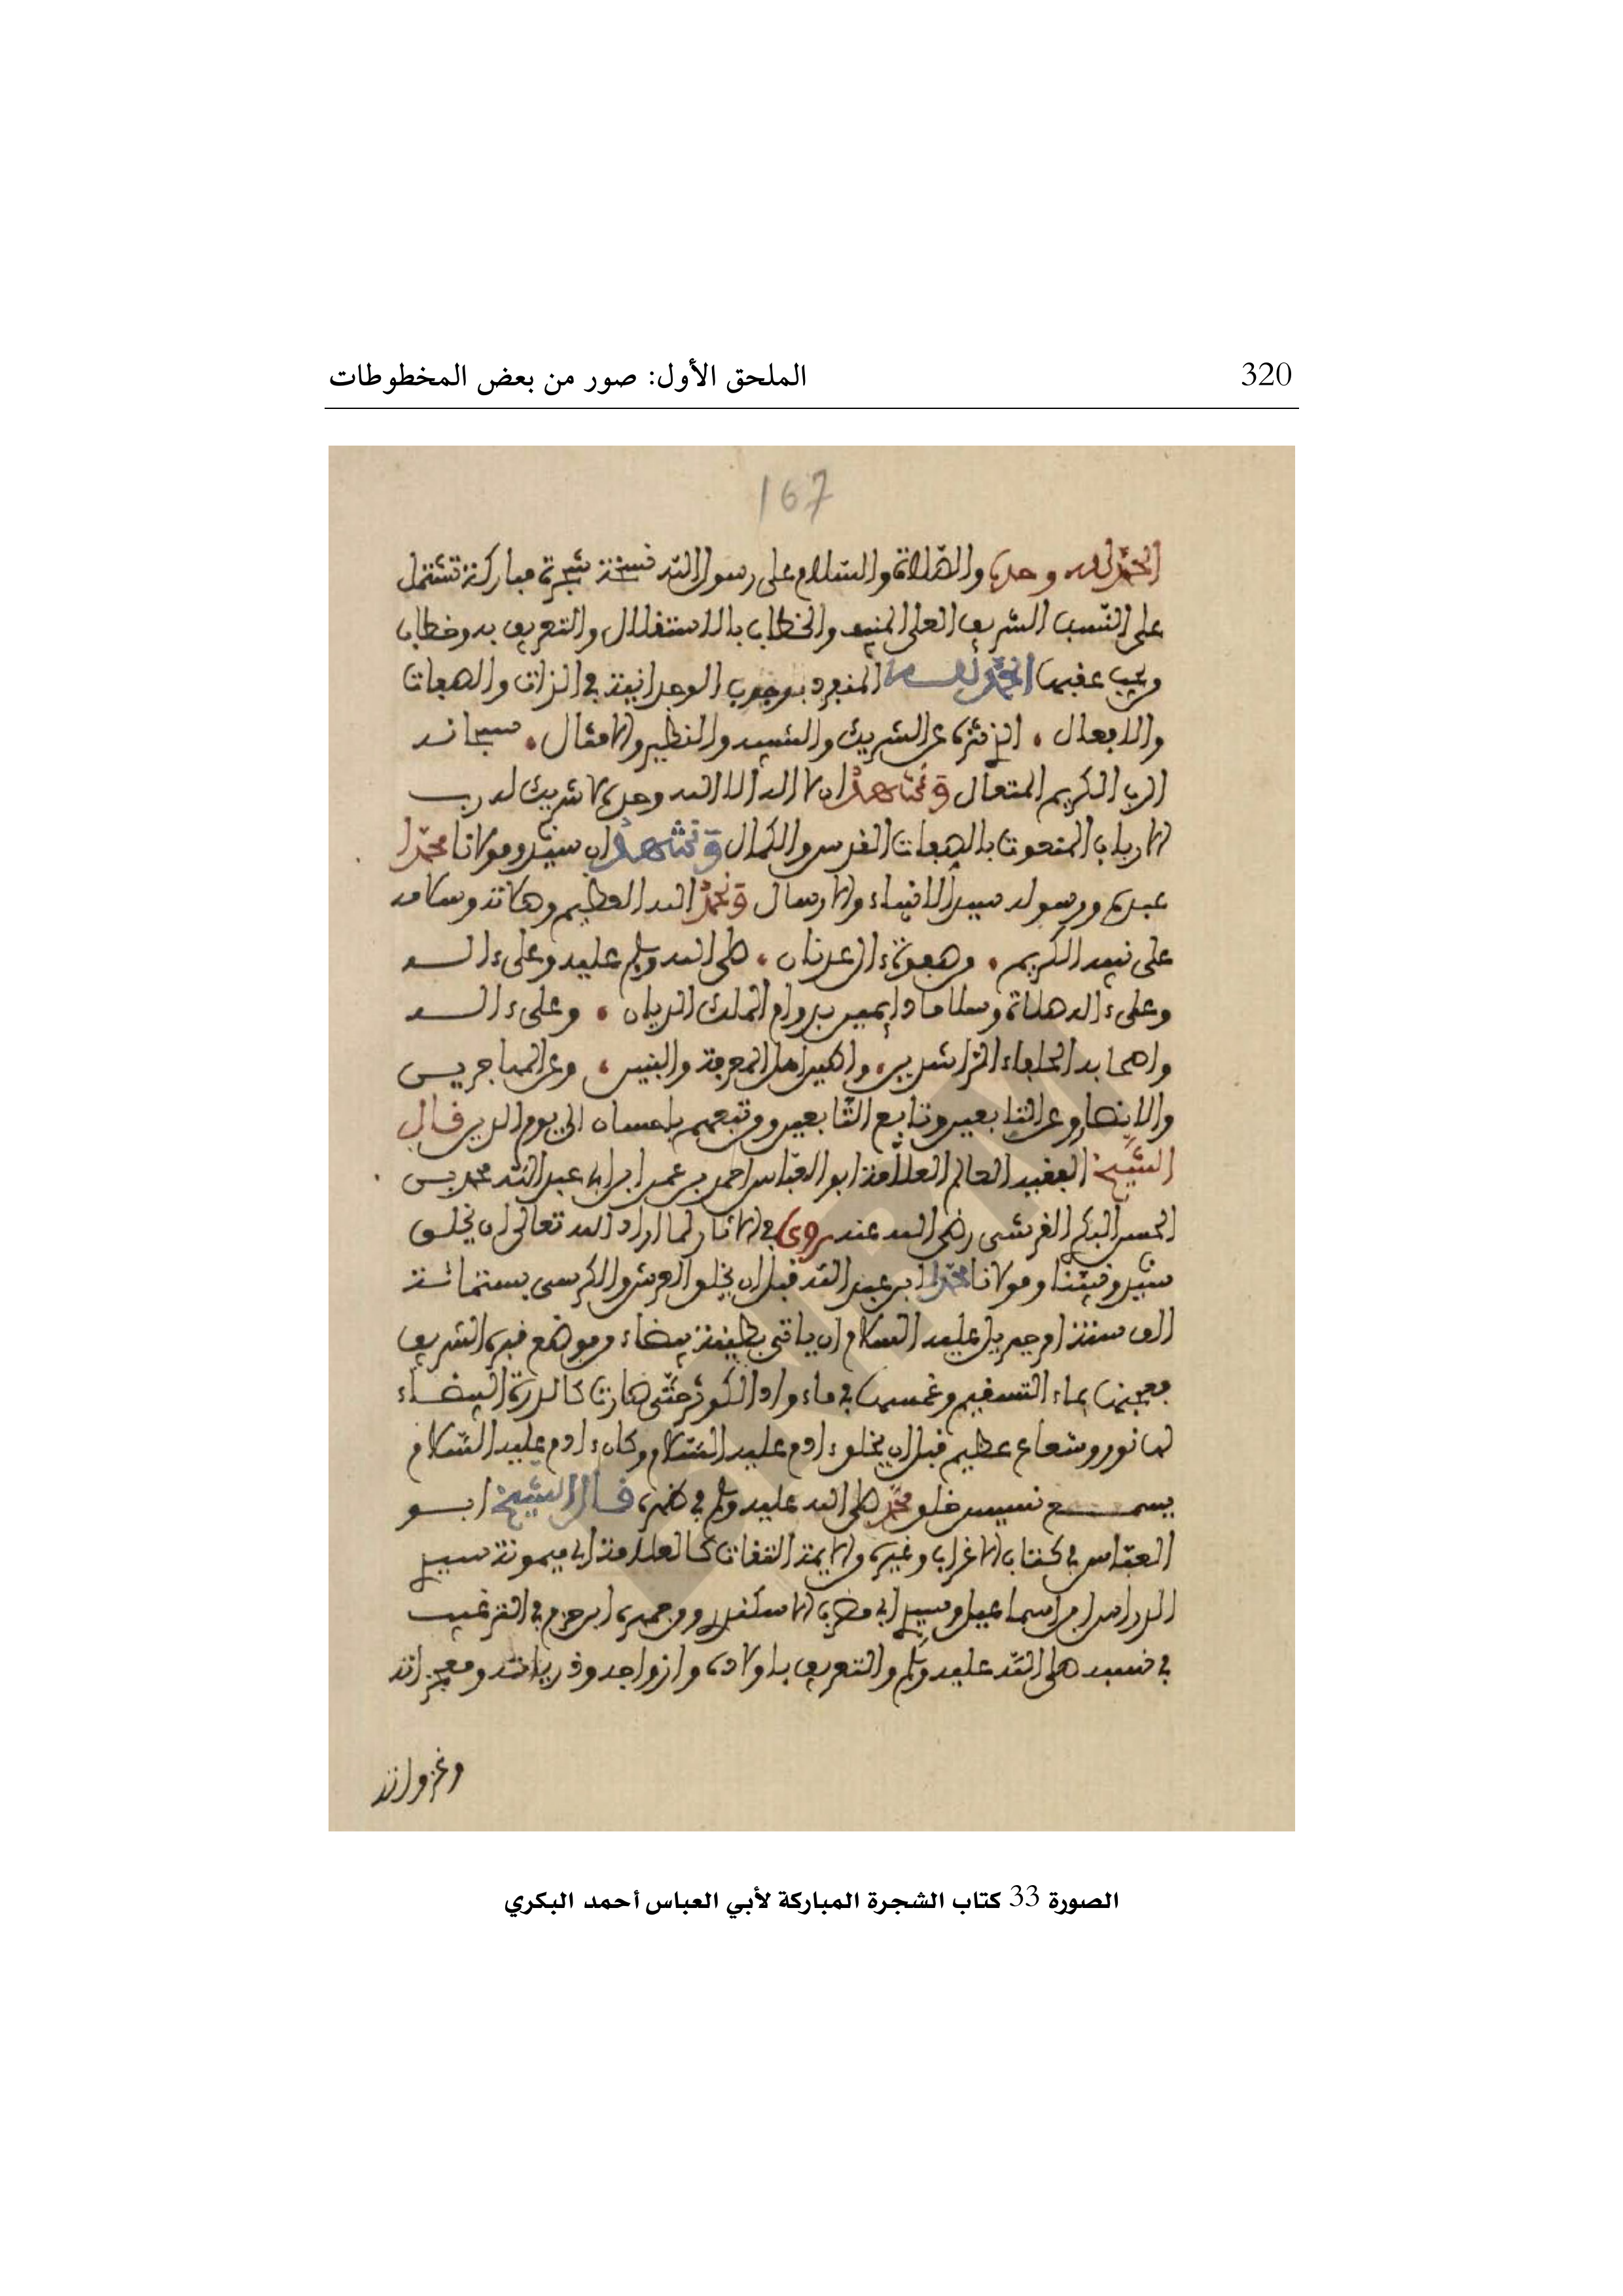 320 الملحق الأول: صور من بعض المخطوطات
167
الحمد لله وحده والصلاة والسلام على رسول الله نسخة شجرة مباركة تشتمل
على النسب الشريف العلى المنيف والخطاب بالاستقلال والتعريف به وخطاب
الحمد لله المنفرد بوجوب الوحدانية في الذات والصفات
والافعال . المنزه عن الشريك والشبيه والنظير والامثال . سبحانه
الرب الكريم المتعال ونشهد ان لا اله الا الله وحده لا شريك له رب
الارباب المنعوت بالصفات القدس والكمال ونشهد ان سيدنا ومولانا محمدا
عبده ورسوله سيد الانبياء والارسال ونحمد الله العظيم وصلاته وسلامه
على نبيه الكريم . وصفوة ال عدنان . صلى الله وسلم عليه وعلى ءاله
وعلى ءاله صلاة وسلاما دايمين بدوام الملك الديان . وعلى ءاله
واصحابه الخلفاء الراشدين . واهل المعرفة واليقين . وعن المهاجرين
والانصار وعن التابعين وتابع التابعين ومن تبعهم باحسان الى يوم الدين قال
الشيخ الفقيه العالم العلامة ابو العباس احمد بن عمر ابن ابي عبد الله محمد بن
الحسن البكري القرشى رضى الله عنه روي في الاثار لما اراد الله تعالى ان يخلق
سيدنا ونبينا ومولانا محمدا ابن عبد الله قبل ان يخلق العرش والكرسى بستمائة
الف سنة امر جبريل عليه السلام ان ياتى بطينة بيضاء من موضع قبره الشريف
فعجنها بماء التسنيم وغمسها في ماء واد الكوثر حتى صارت كالدرة البيضاء
لها نور وشعاع عظيم قبل ان يخلق ءادم عليه السلام وكان ءادم عليه السلام
يسمع نسيس خلق محمد صلى الله عليه وسلم في ظهره قال الشيخ ابو
العباس في كتاب الاغراب وغيره والايمة الثقات كالعلامة ابي ميمونة سيدي
الدراس ابن اسماعيل وسيدي ابن حزم في الترغيب
في نسبه صلى الله عليه وسلم والتعريف باولاده وازواجه وذرياته ومعجزاته
وغزواته
الصورة 33 كتاب الشجرة المباركة لأبي العباس أحمد البكري